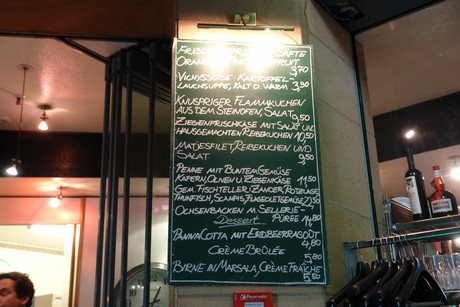 SÄFTE
ORANGE
3,70
VICHYSSOISE - KARTOFFEL-
LAUCHSUPPE, KALT O. WARM 3,90
KNUSPRIGER FLAMMKUCHEN
AUS DEM STEINOFEN, SALAT 9,50
ZIEGENFRISCHKÄSE MIT SALAT UND
HAUSGEMACHTEN REIBEKUCHEN 10,50
MATJESFILET, REIBEKUCHEN UND
SALAT 9,50
PENNE MIT BUNTEM GEMÜSE
KAPERN, OLIVEN U. ZIEGENKÄSE 11,50
GEM. FISCHTELLER: ZANDER, ROTZUNGE
THUNFISCH, SCAMPIS,
OCHSENBACKEN M. SELLERIE-
PÜREE 14,80
Dessert
PANNA COTTA MIT ERDBEERRAGOUT
4,80
CRÈME BRÛLÉE
5,80
BIRNE IN MARSALA, CRÈME FRAÎCHE
5,80